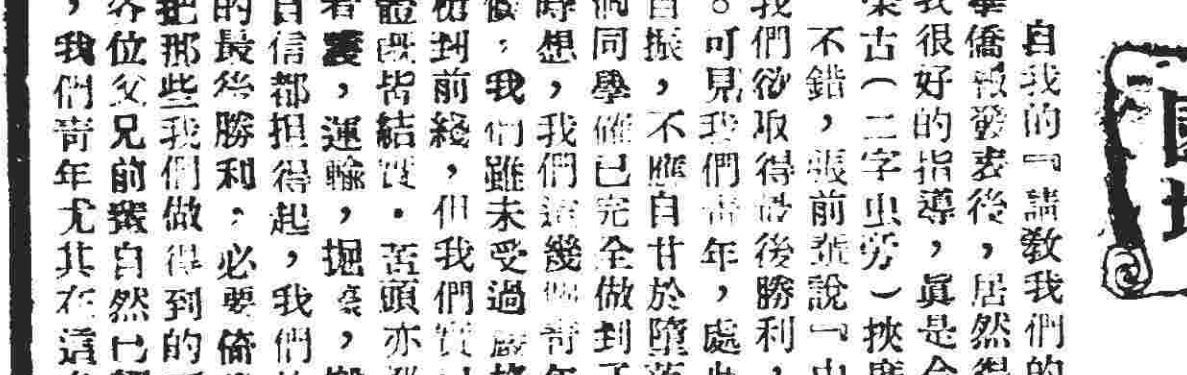 自我的「請教我們的
華僑報發表後，居然得
我很好的指導，眞是
蒙古（二字虫旁）挾
不錯，張前輩說「
我們欲取得最後勝利，
。可見我們靑年，處此
自振，不應自甘於墮落
同學確已完全做到了
時想，我們這幾個靑年
我們雖未受過嚴格
到前綫，但我們
體旣皆結實．苦頭亦
着，運輸，掘壕，
自信都担得起，我們
的最後勝利，必要倚
把那些我們做得到的
各位父兄前輩自然已
，我們靑年尤其在這